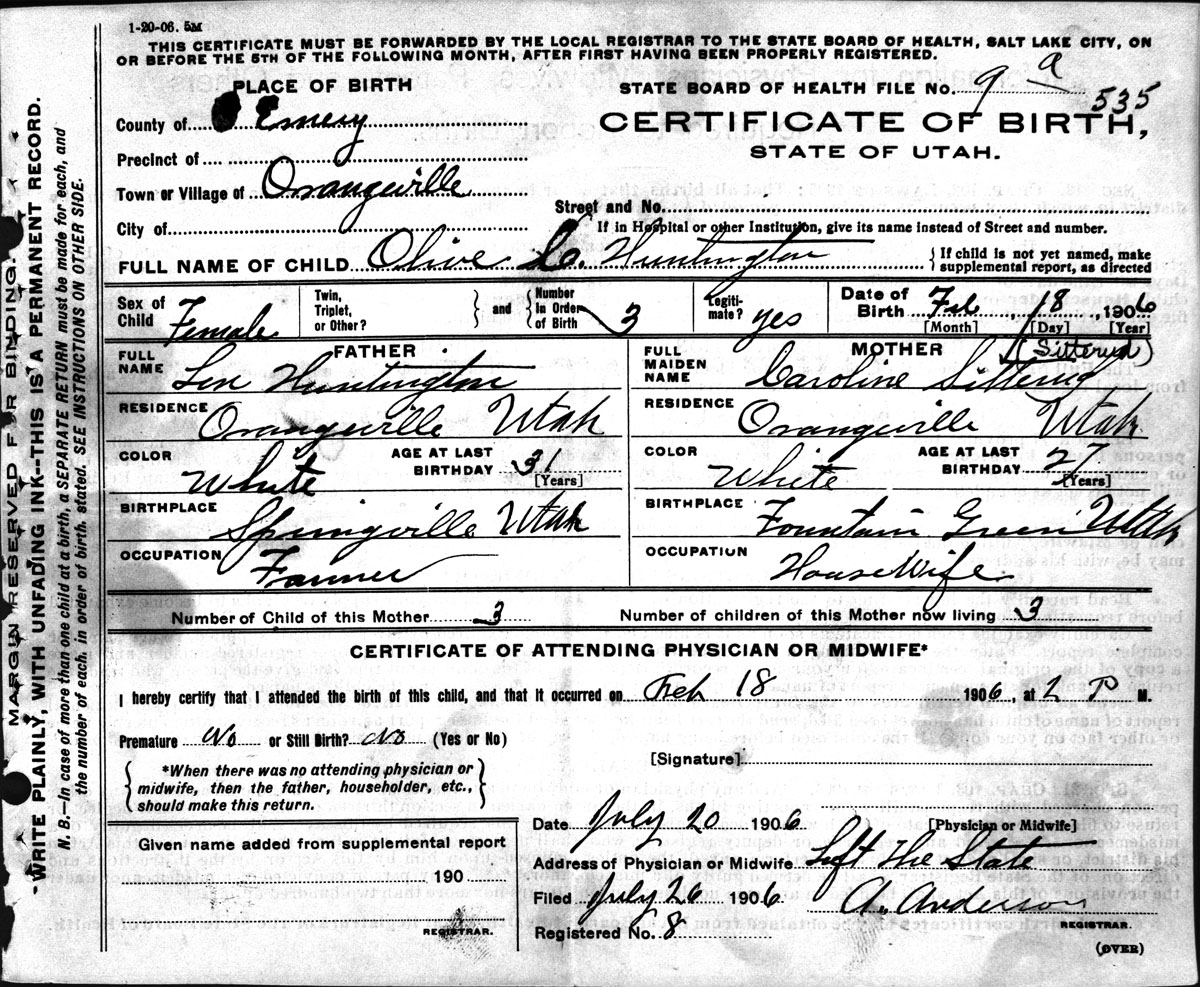 1-20-06. 5M
THIS CERTIFICATE MUST BE FORWARDED BY THE LOCAL REGISTRAR TO THE STATE BOARD OF HEALTH, SALT LAKE CITY, ON
OR BEFORE THE 5TH OF THE FOLLOWING MONTH, AFTER FIRST HAVING BEEN PROPERLY REGISTERED.
PLACE OF BIRTH
STATE BOARD OF HEALTH FILE No. 9 a 535
County of Emery
CERTIFICATE OF BIRTH,
STATE OF UTAH.
Precinct of
Town or Village of Orangeville
Street and No.
City of
If in Hospital or other Institution, give its name instead of Street and number.
FULL NAME OF CHILD Olive C. Huntington
If child is not yet named, make
supplemental report, as directed
Sex of Child Female
Twin, Triplet, or Other?
and
Number In Order of Birth 3
Legiti-mate? yes
Date of Birth Feb 18, 1906
[Month] [Day] [Year]
FATHER
FULL NAME Huntington
RESIDENCE Orangeville Utah
COLOR White
AGE AT LAST BIRTHDAY 31
[Years]
BIRTHPLACE Springville Utah
OCCUPATION Farmer
MOTHER
(Sitteryd)
FULL MAIDEN NAME Caroline
RESIDENCE Orangeville Utah
COLOR White
AGE AT LAST BIRTHDAY 27
[Years]
BIRTHPLACE Fountain Green Utah
OCCUPATION HouseWife
Number of Child of this Mother 3
Number of children of this Mother now living 3
CERTIFICATE OF ATTENDING PHYSICIAN OR MIDWIFE*
I hereby certify that I attended the birth of this child, and that it occurred on Feb 18 1906, at 2 P M.
Premature No or Still Birth? No (Yes or No)
[Signature]
*When there was no attending physician or
midwife, then the father, householder, etc.,
should make this return.
Date July 20 1906
[Physician or Midwife]
Given name added from supplemental report
190
REGISTRAR.
Address of Physician or Midwife Left The State
Filed July 26 1906
A. Anderson
REGISTRAR.
Registered No. 8
(OVER)
MARGIN RESERVED FOR BINDING.
WRITE PLAINLY, WITH UNFADING INK--THIS IS A PERMANENT RECORD.
N. B.—In case of more than one child at a birth, a SEPARATE RETURN must be made for each, and
the number of each, in order of birth, stated. SEE INSTRUCTIONS ON OTHER SIDE.